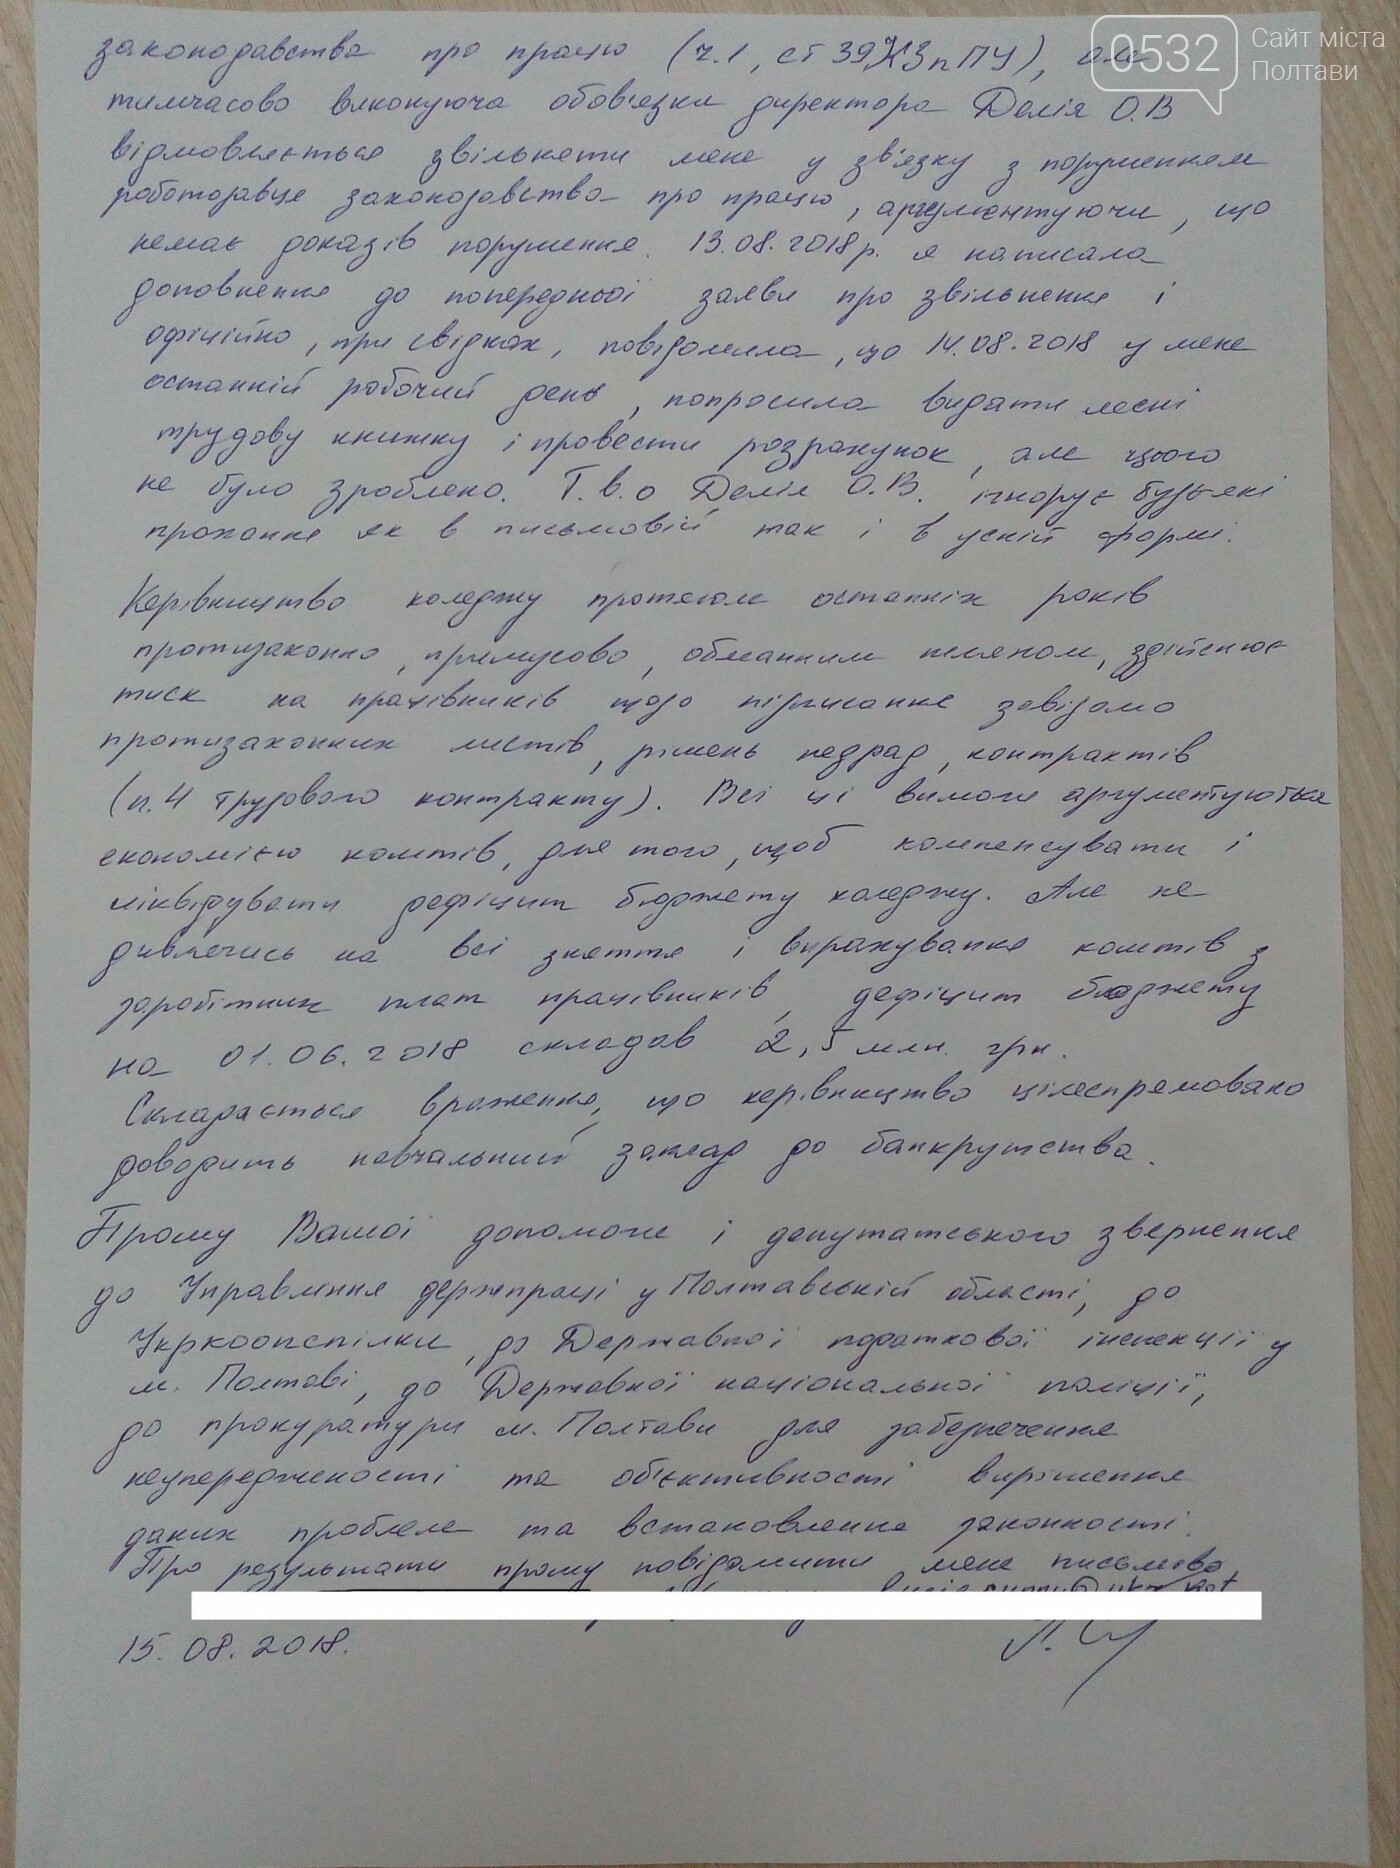 0532 Сайт міста
Полтави
законодавства про працю (ч.1, ст 39 КЗпПУ), але
тимчасово виконуюча обов'язки директора Делія О.В
відмовляється звільняти мене у зв'язку з порушенням
роботодавце законодавства про працю, аргументуючи, що
немає доказів порушення. 13.08.2018р. я написала
доповнення до попередньої заяви про звільнення і
офіційно, при свідках, повідомила, що 14.08.2018 у мене
останній робочий день, попросила видати мені
трудову книжку і провести розрахунок, але цього
не було зроблено. Т.в.о Делія О.В. ігнорує будь-які
прохання як в письмовій так і в усній формі.
Керівництво коледжу протягом останніх років
протизаконно, примусово, обманним шляхом, здійснює
тиск на працівників щодо підписання завідомо
протизаконних листів, рішень педрад, контрактів
(п.4 трудового контракту). Всі ці вимоги аргументуються
економією коштів, для того, щоб компенсувати і
ліквідувати дефіцит бюджету коледжу. Але не
дивлячись на всі зняття і вирахування коштів з
заробітних плат працівників, дефіцит бюджету
на 01.06.2018 складав 2,5 млн. грн.
Складається враження, що керівництво цілеспрямовано
доводить навчальний заклад до банкрутства.
Прошу Вашої допомоги і депутатського звернення
до Управління держпраці у Полтавській області, до
Укркоопспілки, до Державної податкової інспекції у
м. Полтаві, до Державної національної поліції,
до прокуратури м. Полтави для забезпечення
неупередженості та об'єктивності вирішення
даних проблем та встановлення законності.
Про результати прошу повідомити мене письмово
15.08.2018.